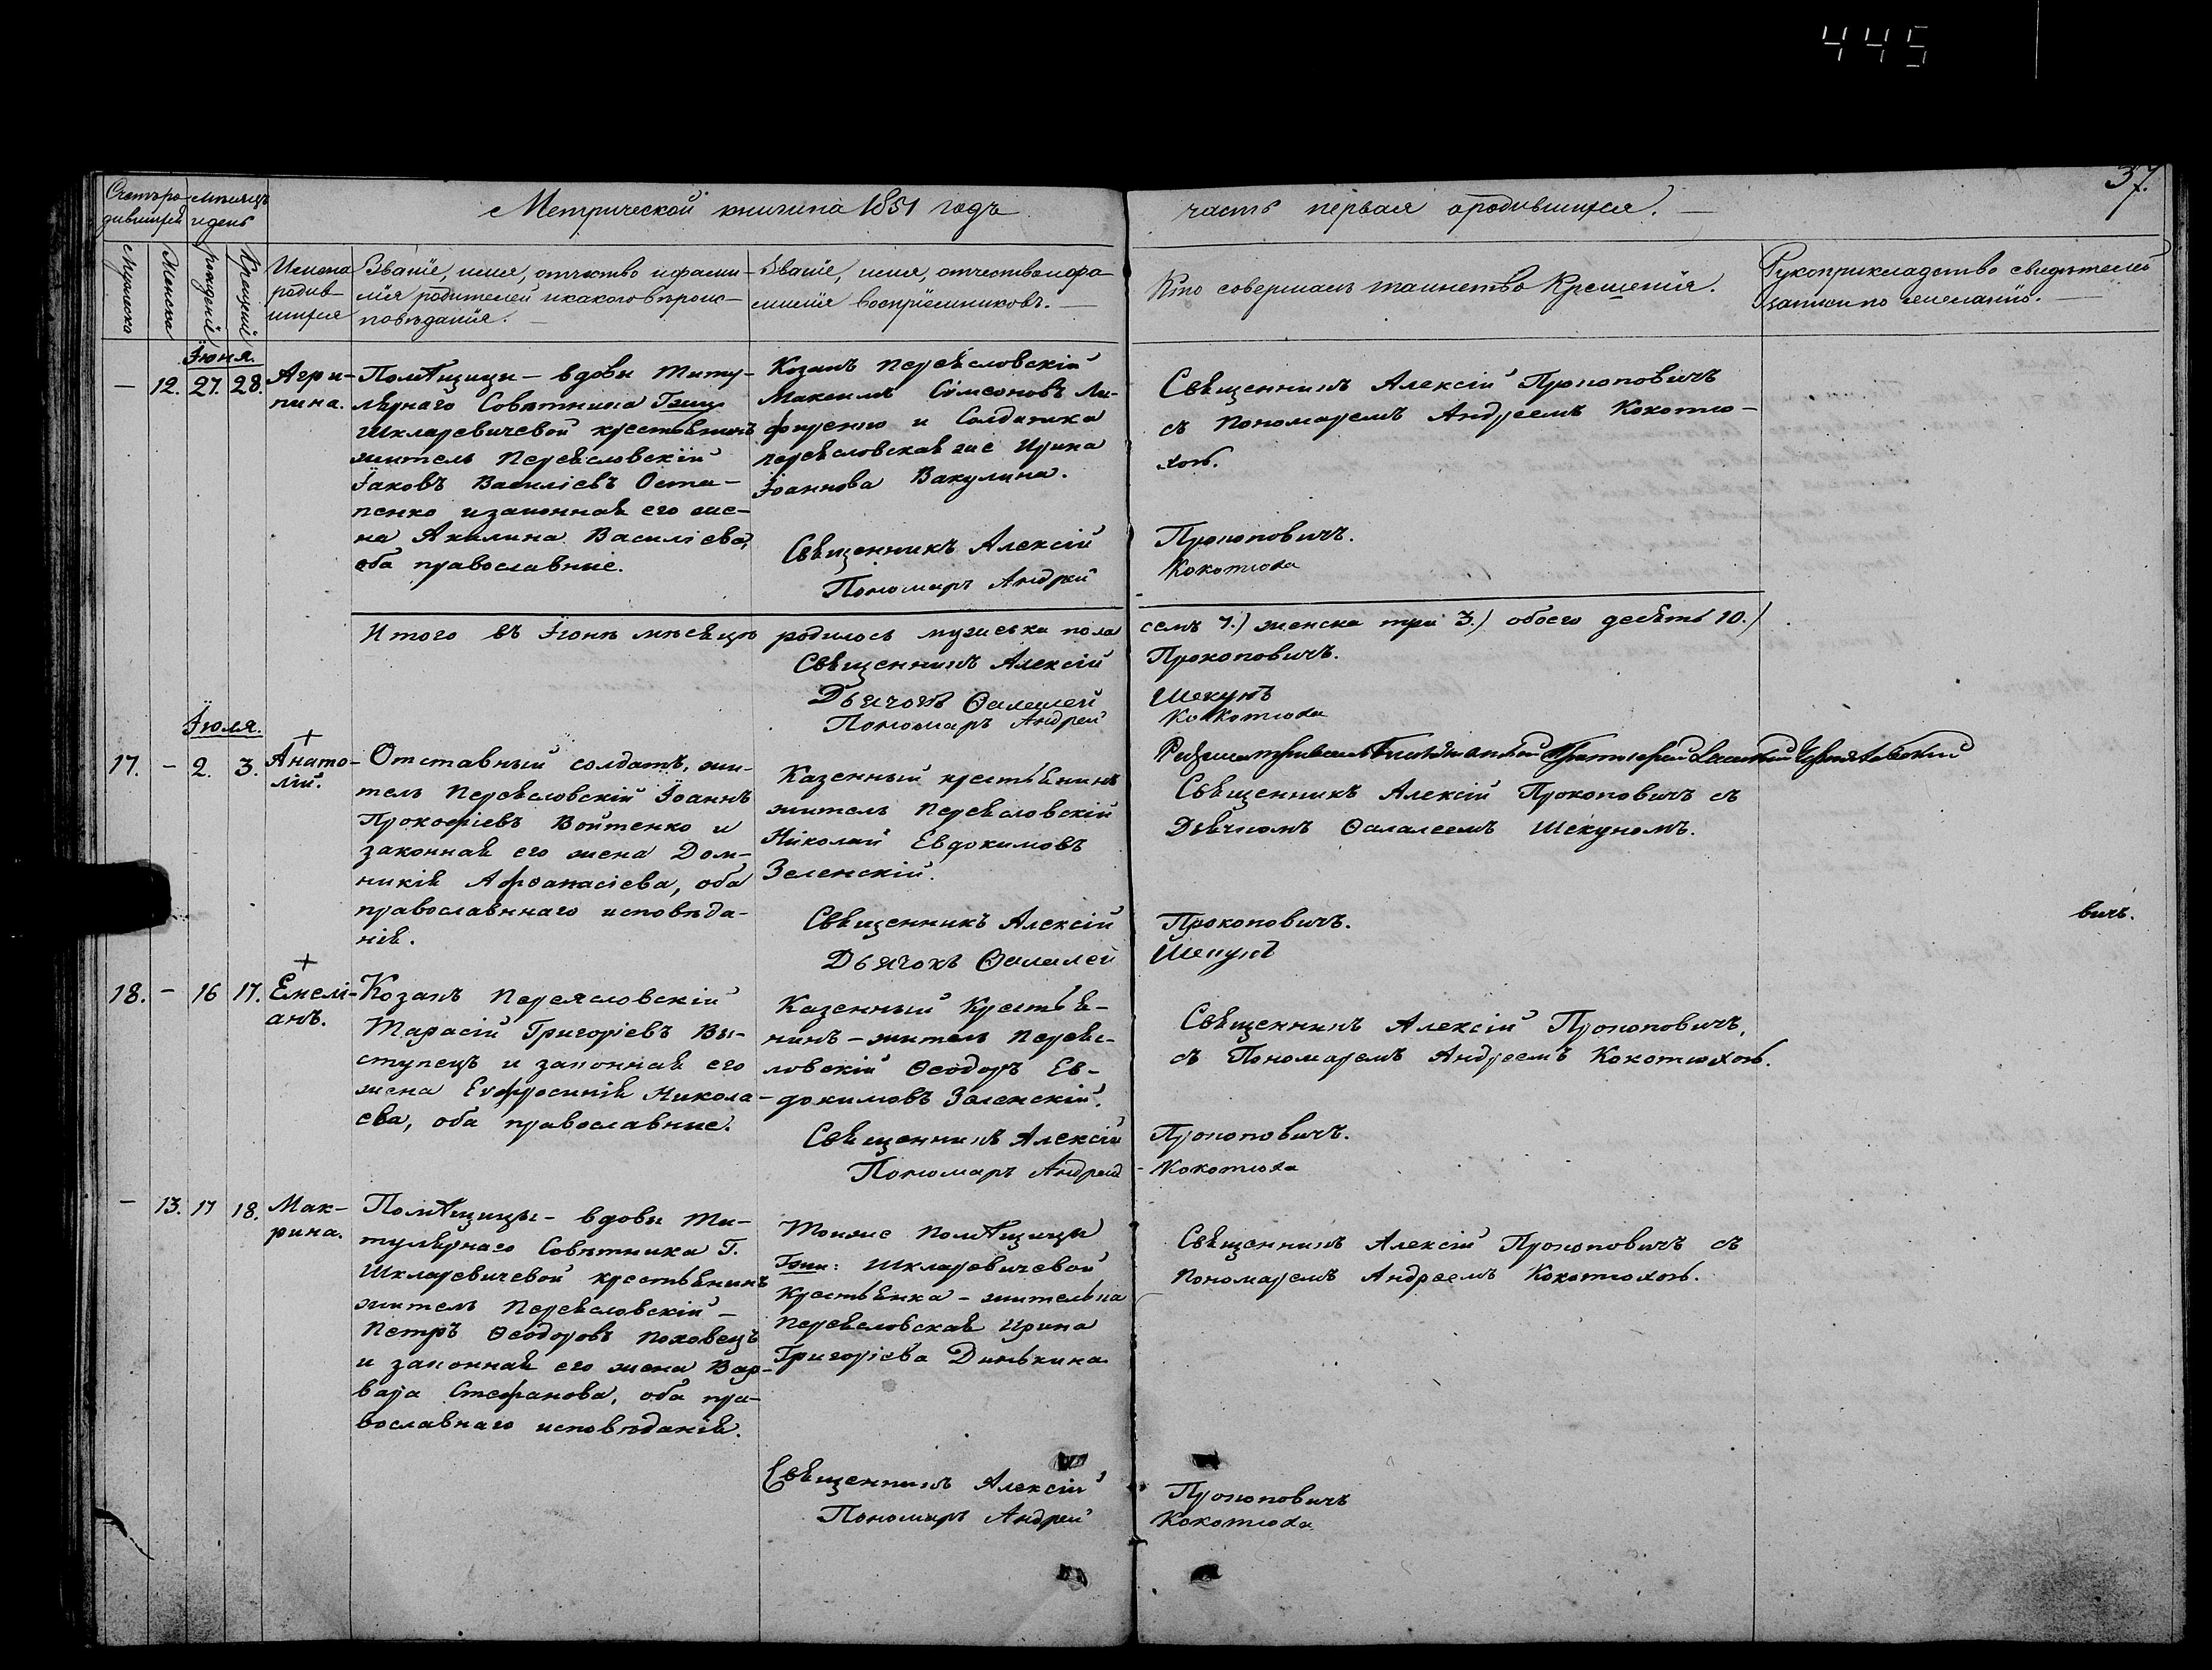 445
37.
Счетъ ро- Мѣсяцъ
дившихся и день
Метрической книги на 1851 годъ
часть первая о родившихся.
Мужеска
Женска
рожденія
Крещенія
Имена
родив-
шихся
Званіе, имя, отчество и фами-
лія родителей и какого вѣроис-
повѣданія.
Званіе, имя, отчество и фа-
милія воспріемниковъ.
Кто совершалъ таинство Крещенія.
Рукоприкладство свидѣтелей
записи по желанію.
Іюня.
— 12. 27. 28.
Агри-
пина.
Помѣщицы - вдовы Титу-
лярнаго Совѣтника Гжи
Шкляревичевой крестьянинъ
житель Переясловскій
Іаковъ Василіевъ Оста-
пенко и законная его же-
на Акилина Василіева,
оба православные.
Козакъ Переясловскій
Максимъ Сѵмеоновъ
и Солдатка
переясловская же Ирина
Іоаннова Вакулина.
Священникъ Алексій
Пономарь Андрей
Священникъ Алексій Прокоповичъ
съ Пономаремъ Андреемъ Кокотю-
хою.
Прокоповичъ.
Кокотюха
Итого въ Іюнѣ мѣсяцѣ родилось мужеска пола
семъ 7.) женска три 3.) обоего десять 10.)
Священникъ Алексій
Дьячокъ Ѳалалей
Пономарь Андрей
Прокоповичъ.
Шекунъ
Кокотюха
Іюля.
17. - 2. 3.
+
Анато-
лій.
Отставный солдатъ, жи-
тель Переясловскій Іоаннъ
Прокофіевъ Войтенко и
законная его жена Дом-
никія Афѳанасіева, оба
православннаго исповѣда-
нія.
Казенный крестьянинъ
житель Переясловскій
Николай Евдокимовъ
Зеленскій.
Священникъ Алексій
Дьячокъ Ѳалалей
Священникъ Алексій Прокоповичъ съ
Дьячкомъ Ѳалалеемъ Шекуномъ.
Прокоповичъ.
Шекунъ
вичъ.
18. - 16 17.
+
Емелі-
анъ.
Козакъ Переясловскій
Тарасій Григоріевъ Вы-
ступецъ и законная его
жена Евфросинія Никола-
ева, оба православные.
Казенный Крестья-
нинъ - житель Переяс-
ловскій Ѳеодоръ Ев-
докимовъ Зеленскій.
Священникъ Алексій
Пономарь Андрей
Священникъ Алексій Прокоповичъ,
съ Пономаремъ Андреемъ Кокотюхою.
Прокоповичъ.
Кокотюха
— 13. 17 18.
Мак-
рина.
Помѣщицы - вдовы Ти-
тулярнаго Совѣтника Г.
Шкляревичевой крестьянинъ
житель Переясловскій -
Петръ Ѳеодоровъ Поховецъ
и законная его жена Вар-
вара Стефанова, оба пра-
вославнаго исповѣданія.
Тоиже Помѣщицы
Гжи: Шкляревичевой
Крестьянка - жителька
Переясловская Ирина
Григоріева Динькина
Священникъ Алексій
Пономарь Андрей
Священникъ Алексій Прокоповичъ съ
Пономаремъ Андреемъ Кокотюхою.
Прокоповичъ
Кокотюха